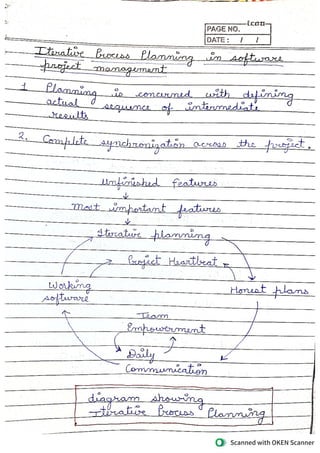 icon
PAGE NO.
DATE: / /
Iterative Process Planning in software
project management
1 Planning is concerned with defining
actual sequence of intermediate
results
2. Complete synchronization across the project.
Unfinished features
Most important features
Iterative planning
Project Heartbeat
Working
software
Honest plans
Team
Empowerment
Daily
Communication
diagram showing
Iterative Process Planning
Scanned with OKEN Scanner